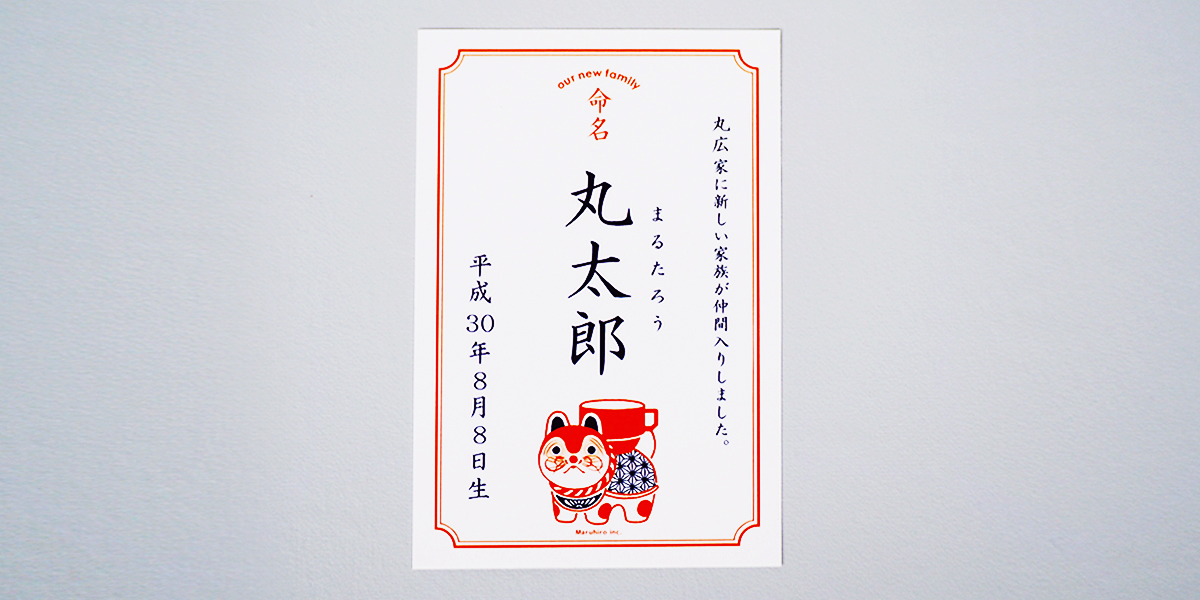 our new family
命名
丸広家に新しい家族が仲間入りしました。
まるたろう
丸太郎
平成30年8月8日生
Maruhiro inc.